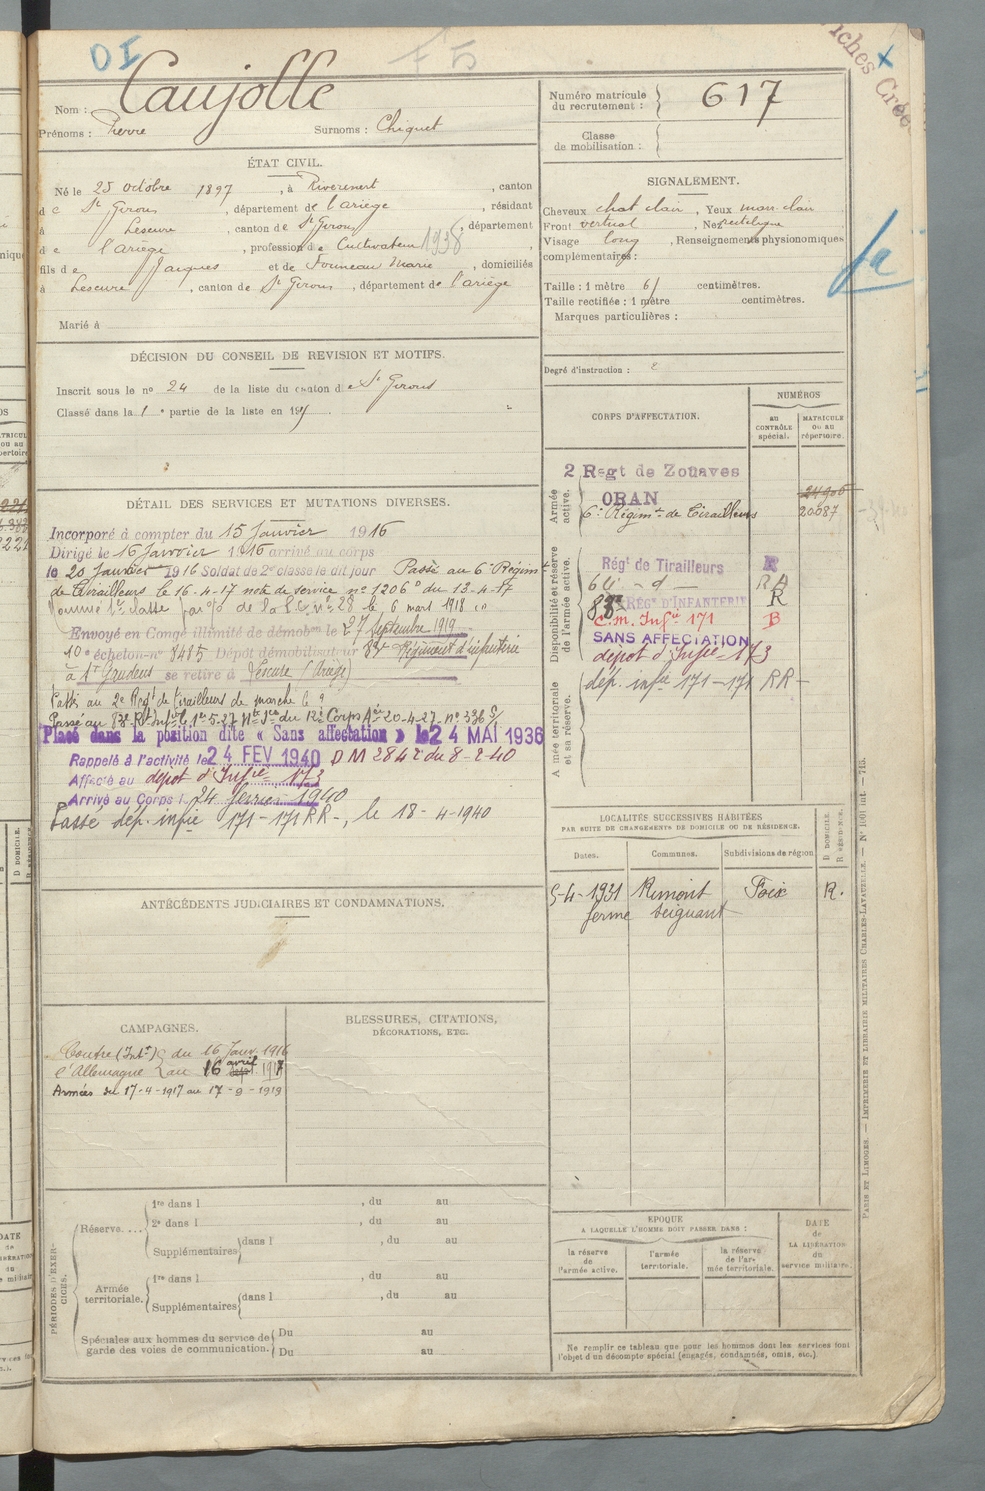 Nom : Caujolle
Prénoms : Pierre Surnoms : Chiquet
ÉTAT CIVIL.
Né le 25 octobre 1897, à Riverenert, canton
de St Girons, département de l'ariège, résidant
à Lescure, canton de St Girons, département
de l'ariège, profession de Cultivateur 1938
fils de Jacques et de Fourneau Marie, domiciliés
à Lescure, canton de St Girons, département de l'ariège
Marié à
DÉCISION DU CONSEIL DE REVISION ET MOTIFS.
Inscrit sous le no 24 de la liste du canton de St Girons
Classé dans la 1e partie de la liste en 19
DÉTAIL DES SERVICES ET MUTATIONS DIVERSES.
Incorporé à compter du 15 Janvier 1916
Dirigé le 16 Janvier 1916 arrivé au corps
le 20 Janvier 1916 Soldat de 2e classe le dit jour Passé au 6e Régimt
de Tirailleurs le 16-4-17 note de service no 1206 du 12-4-17
Nommé 1re classe par de la no 28 le 6 mars 1918
Envoyé en Congé illimité de démobon le 27 Septembre 1919
10e échelon no 8485 Dépôt démobilisateur 83e Régiment d'infanterie
à St Gaudens se retire à Lescure (Ariège)
Passé au 2e Regt de tirailleurs de marche le
Passé au 83e Rt Infie le 1er-5-27 Nte Sce du 17e Corps Aée 20-4-27 no 336
Placé dans la position dite « Sans affectation » le 24 MAI 1936
Rappelé à l'activité le 24 FEV 1940 DM 2842 du 8-2-40
Affecté au dépôt d'Infie 173
Arrivé au Corps l 24 février 1940
Passé dép. infie 171-171 RR-, le 18-4-1940
ANTÉCÉDENTS JUDICIAIRES ET CONDAMNATIONS.
CAMPAGNES.
Contre (Intr) du 16 Janv. 1916
l'Allemagne au 16 avril 1917
Armées du 17-4-1917 au 17-9-1919
BLESSURES, CITATIONS,
DÉCORATIONS, ETC.
PÉRIODES D'EXERCICES.
Réserve.... 1re dans l , du au
2e dans l , du au
Supplémentaires dans l , du au
Armée territoriale. 1re dans l , du au
Supplémentaires dans l , du au
Spéciales aux hommes du service de Du au
garde des voies de communication. Du au
Numéro matricule
du recrutement : 617
Classe
de mobilisation :
SIGNALEMENT.
Cheveux chat clair, Yeux mar. clair
Front vertical, Nez rectiligne
Visage long, Renseignements physionomiques
complémentaires :
Taille : 1 mètre 61 centimètres.
Taille rectifiée : 1 mètre centimètres.
Marques particulières :
Degré d'instruction : 2
CORPS D'AFFECTATION.
NUMÉROS
au
CONTRÔLE
spécial.
MATRICULE
OU AU
répertoire.
Armée
active.
2 Regt de Zouaves
ORAN
6e Régimt de Tirailleurs 20687
Disponibilité et réserve
de l'armée active.
Régt de Tirailleurs R
RÉGt D'INFANTERIE R
C.M. Infie 171 B
SANS AFFECTATION
dépôt d'Infie 173
dép. infie 171-171 RR-
Armée territoriale
et sa réserve.
LOCALITÉS SUCCESSIVES HABITÉES
PAR SUITE DE CHANGEMENTS DE DOMICILE OU DE RÉSIDENCE.
Dates. Communes. Subdivisions de région
D DOMICILE.
R RÉSIDENCE.
5-4-1931 Rimont Foix R.
ferme
EPOQUE
A LAQUELLE L'HOMME DOIT PASSER DANS :
la réserve
de
l'armée active.
l'armée
territoriale.
la réserve
de l'armée
territoriale.
DATE
de
LA LIBÉRATION
du
service militaire.
Ne remplir ce tableau que pour les hommes dont les services font
l'objet d'un décompte spécial (engagés, condamnés, omis, etc.)
PARIS ET LIMOGES. — IMPRIMERIE ET LIBRAIRIE MILITAIRES CHARLES-LAVAUZELLE. — No 1001 int. — 715.